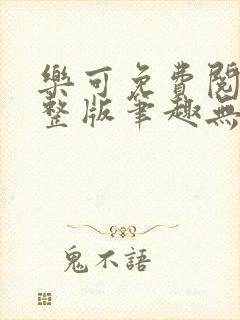 樂可免費閱
整版筆趣無
鬼不語